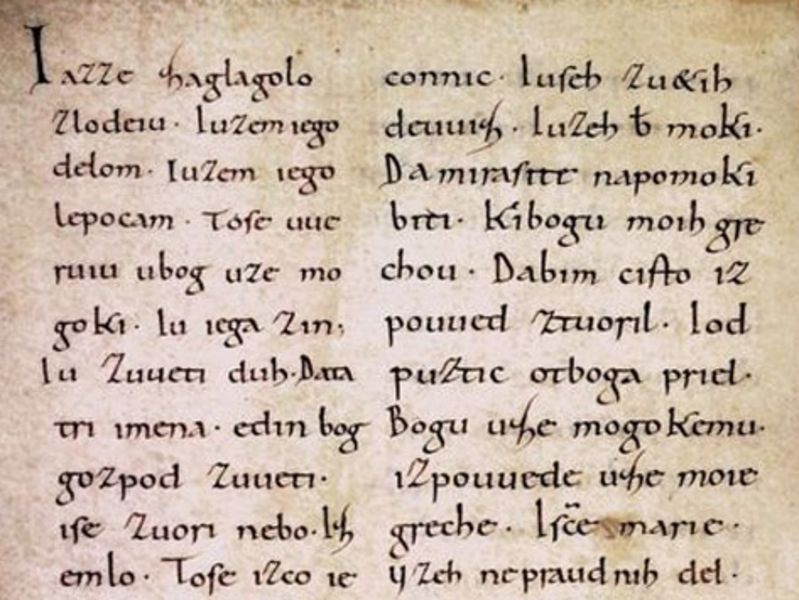 Iazze zaglagolo
zlodeiu · Iuzem iego
delom · Iuzem iego
lepocam · Tose uue
ruiu ubog uze mo
goki · Iu iega zin;
Iu zuueti duh · Data
tri imena · edin bog
gozpod zuueti ·
ise zuori nebo · Iz
emlo · Tose izco ie
connic · Iuseh zu&ih
deuuiz · Iuzeh ƀ moki ·
Da mirasite napomoki
biti · Ki bogu moih gre
chou · Dabim cisto iz
pouued ztuoril · Iod
puztic otboga priel ·
Bogu uze mogokemu ·
izpouuede uze moie
greche · Isc̄e marie ·
yzeh nepraudnih del ·